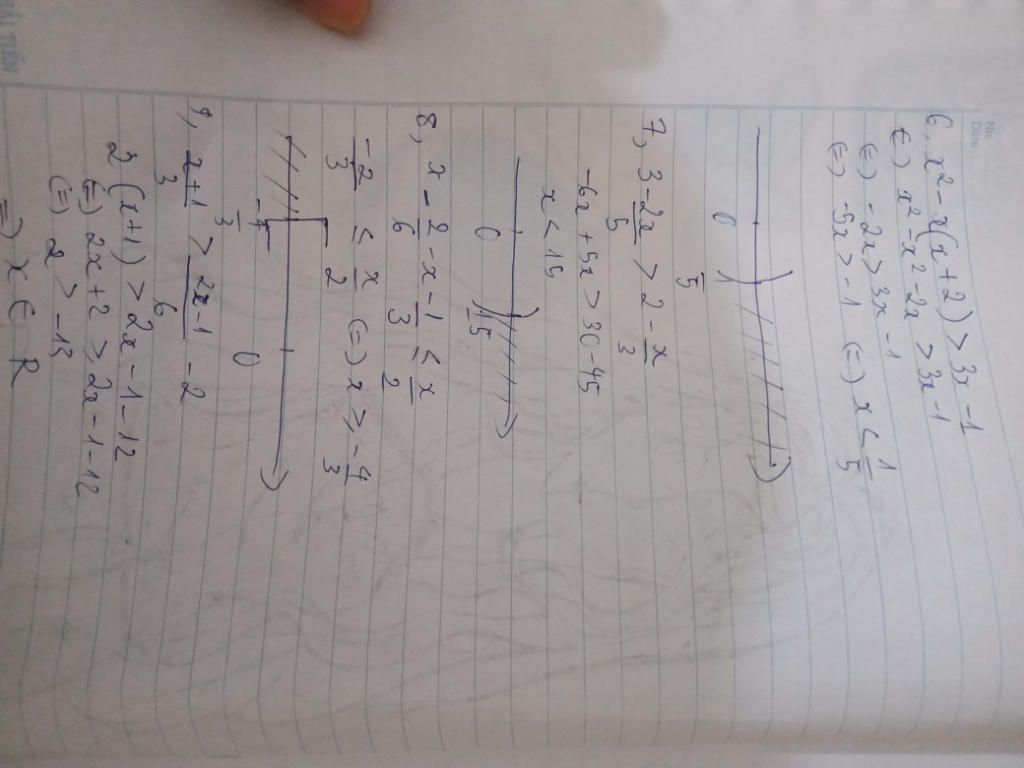 No.
Date
6, x² - x(x+2) > 3x - 1
(=) x² - x² - 2x > 3x - 1
(=) -2x > 3x - 1
(=) -5x > -1 (=) x < 1/5
0 1/5
7, 3 - 2x/5 > 2 - x/3
-6x + 5x > 30 - 45
x < 15
0 15
8, x - 2/6 - x - 1/3 ≤ x/2
-2/3 ≤ x/2 (=) x ≥ -4/3
-4/3 0
9, x+1/3 > 2x-1/6 - 2
2(x+1) > 2x - 1 - 12
(=) 2x + 2 > 2x - 1 - 12
(=) 2 > -13
=) x ∈ R